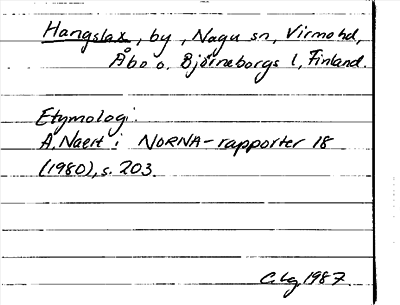 Hangslax, by, Nagu sn, Virmo hd,
Åbo o. Björneborgs l, Finland.
Etymologi:
A. Naert i NORNA-rapporter 18
(1980), s. 203.
1987.